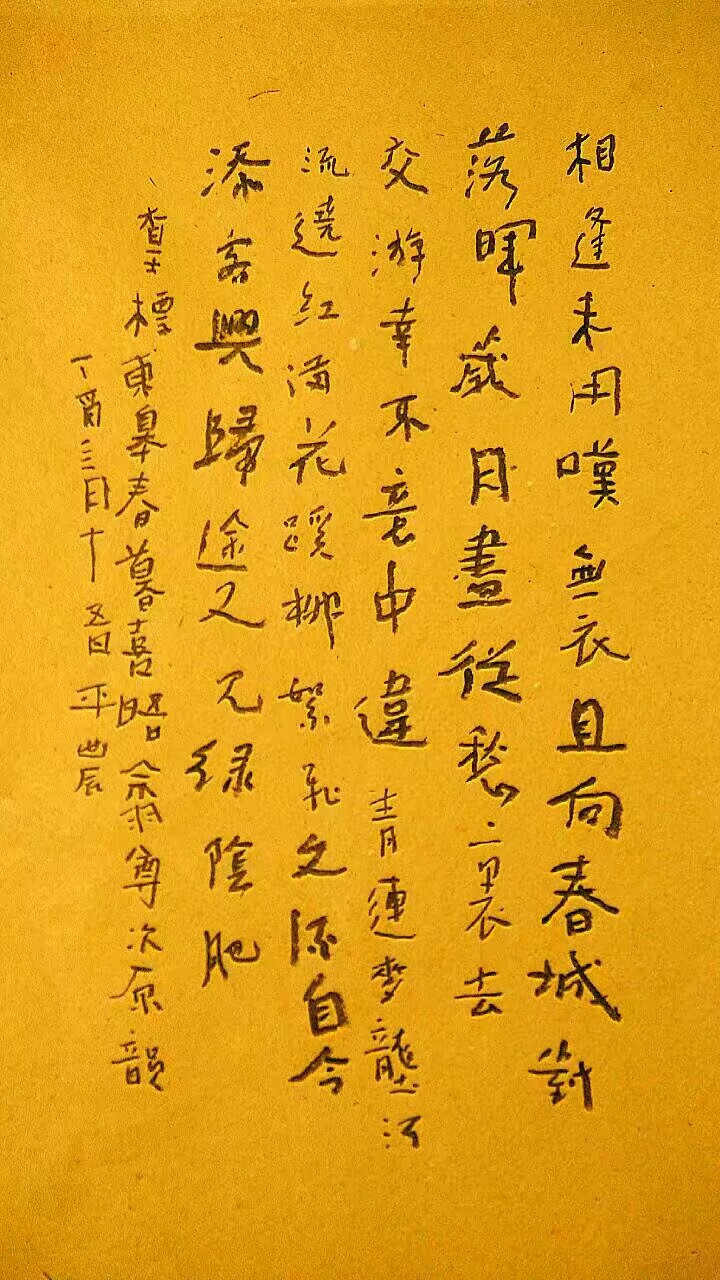 相逢未用嘆無衣且向春城對
落暉歲月盡從愁裏去
交游幸不意中違青連麥壟河
流遶紅滿花蹊柳絮飛文酒自今
添客興歸途又見綠陰肥
查士標東皋春暮喜晤翁尊次原韻
丁酉三月十五日平